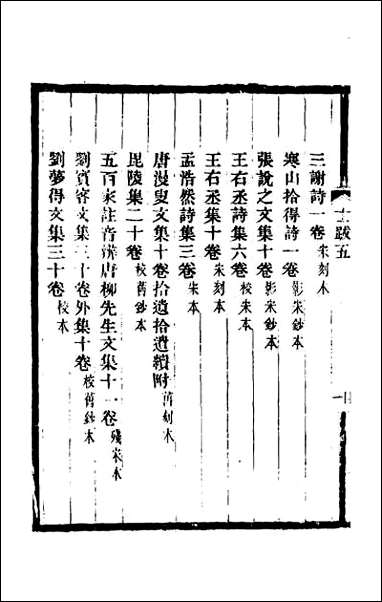 三謝詩一卷 宋刻本
寒山拾得詩一卷 影宋鈔本
張說之文集十卷 影宋鈔本
王右丞詩集六卷 校宋本
王右丞集十卷 宋刻本
孟浩然詩集三卷 宋本
唐漫叟文集十卷拾遺拾遺續附 舊刻本
毘陵集二十卷 校舊鈔本
五百家註音辨唐柳先生文集十一卷 殘宋本
劉賓客文集三十卷外集十卷 校舊鈔本
劉夢得文集三十卷 校本
跋五